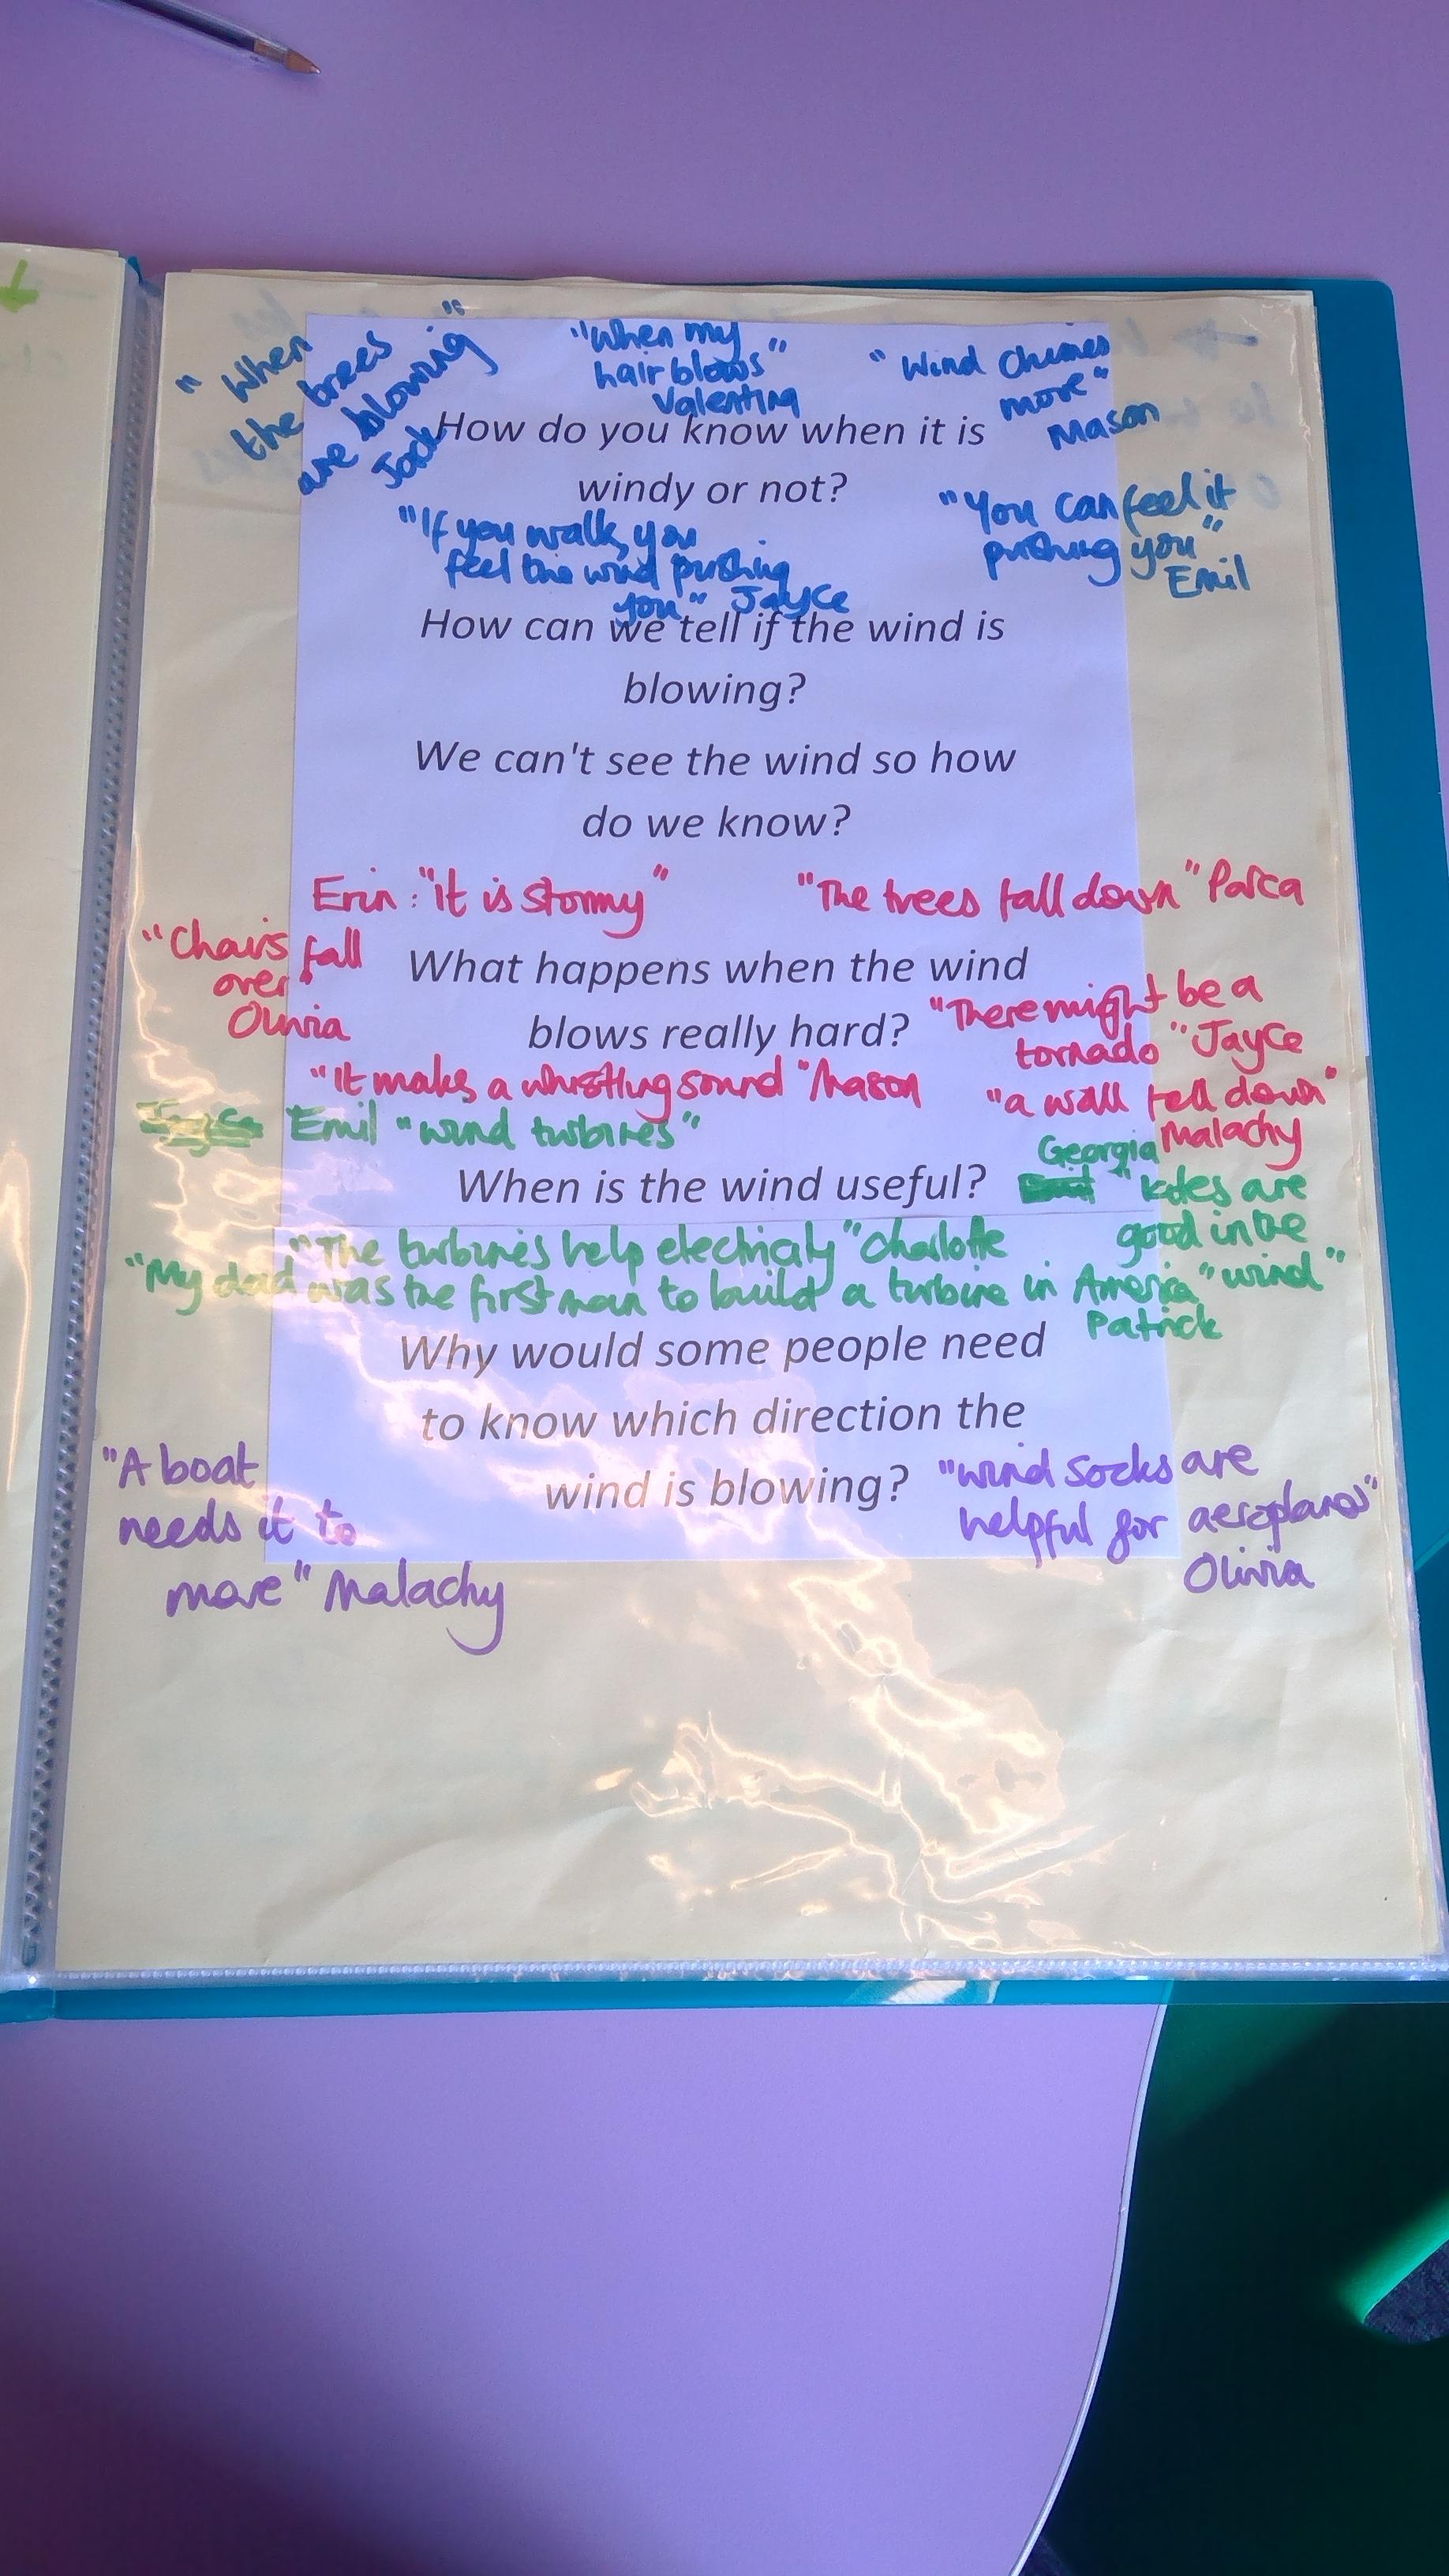 "When
the trees
are blowing"
Jack
"When my
hair blows"
Valentina
"Wind Chimes
move"
Mason
How do you know when it is
windy or not?
"If you walk, you
feel the wind pushing
you" Jayce
"You can feel it
pushing you"
Emil
How can we tell if the wind is
blowing?
We can't see the wind so how
do we know?
Erin: "it is stormy"
"The trees fall down"
"Chairs fall
over"
Olivia
What happens when the wind
blows really hard?
"There might be a
tornado" Jayce
"It makes a whistling sound" Mason
"a wall fell down"
Malachy
Emil "wind turbines"
When is the wind useful?
Georgia
"kites are
good in the
wind"
"The turbines help electricity" Charlotte
"My dad was the first man to build a turbine in America"
Patrick
Why would some people need
to know which direction the
wind is blowing?
"A boat
needs it to
move" Malachy
"wind socks are
helpful for aeroplanes"
Olivia